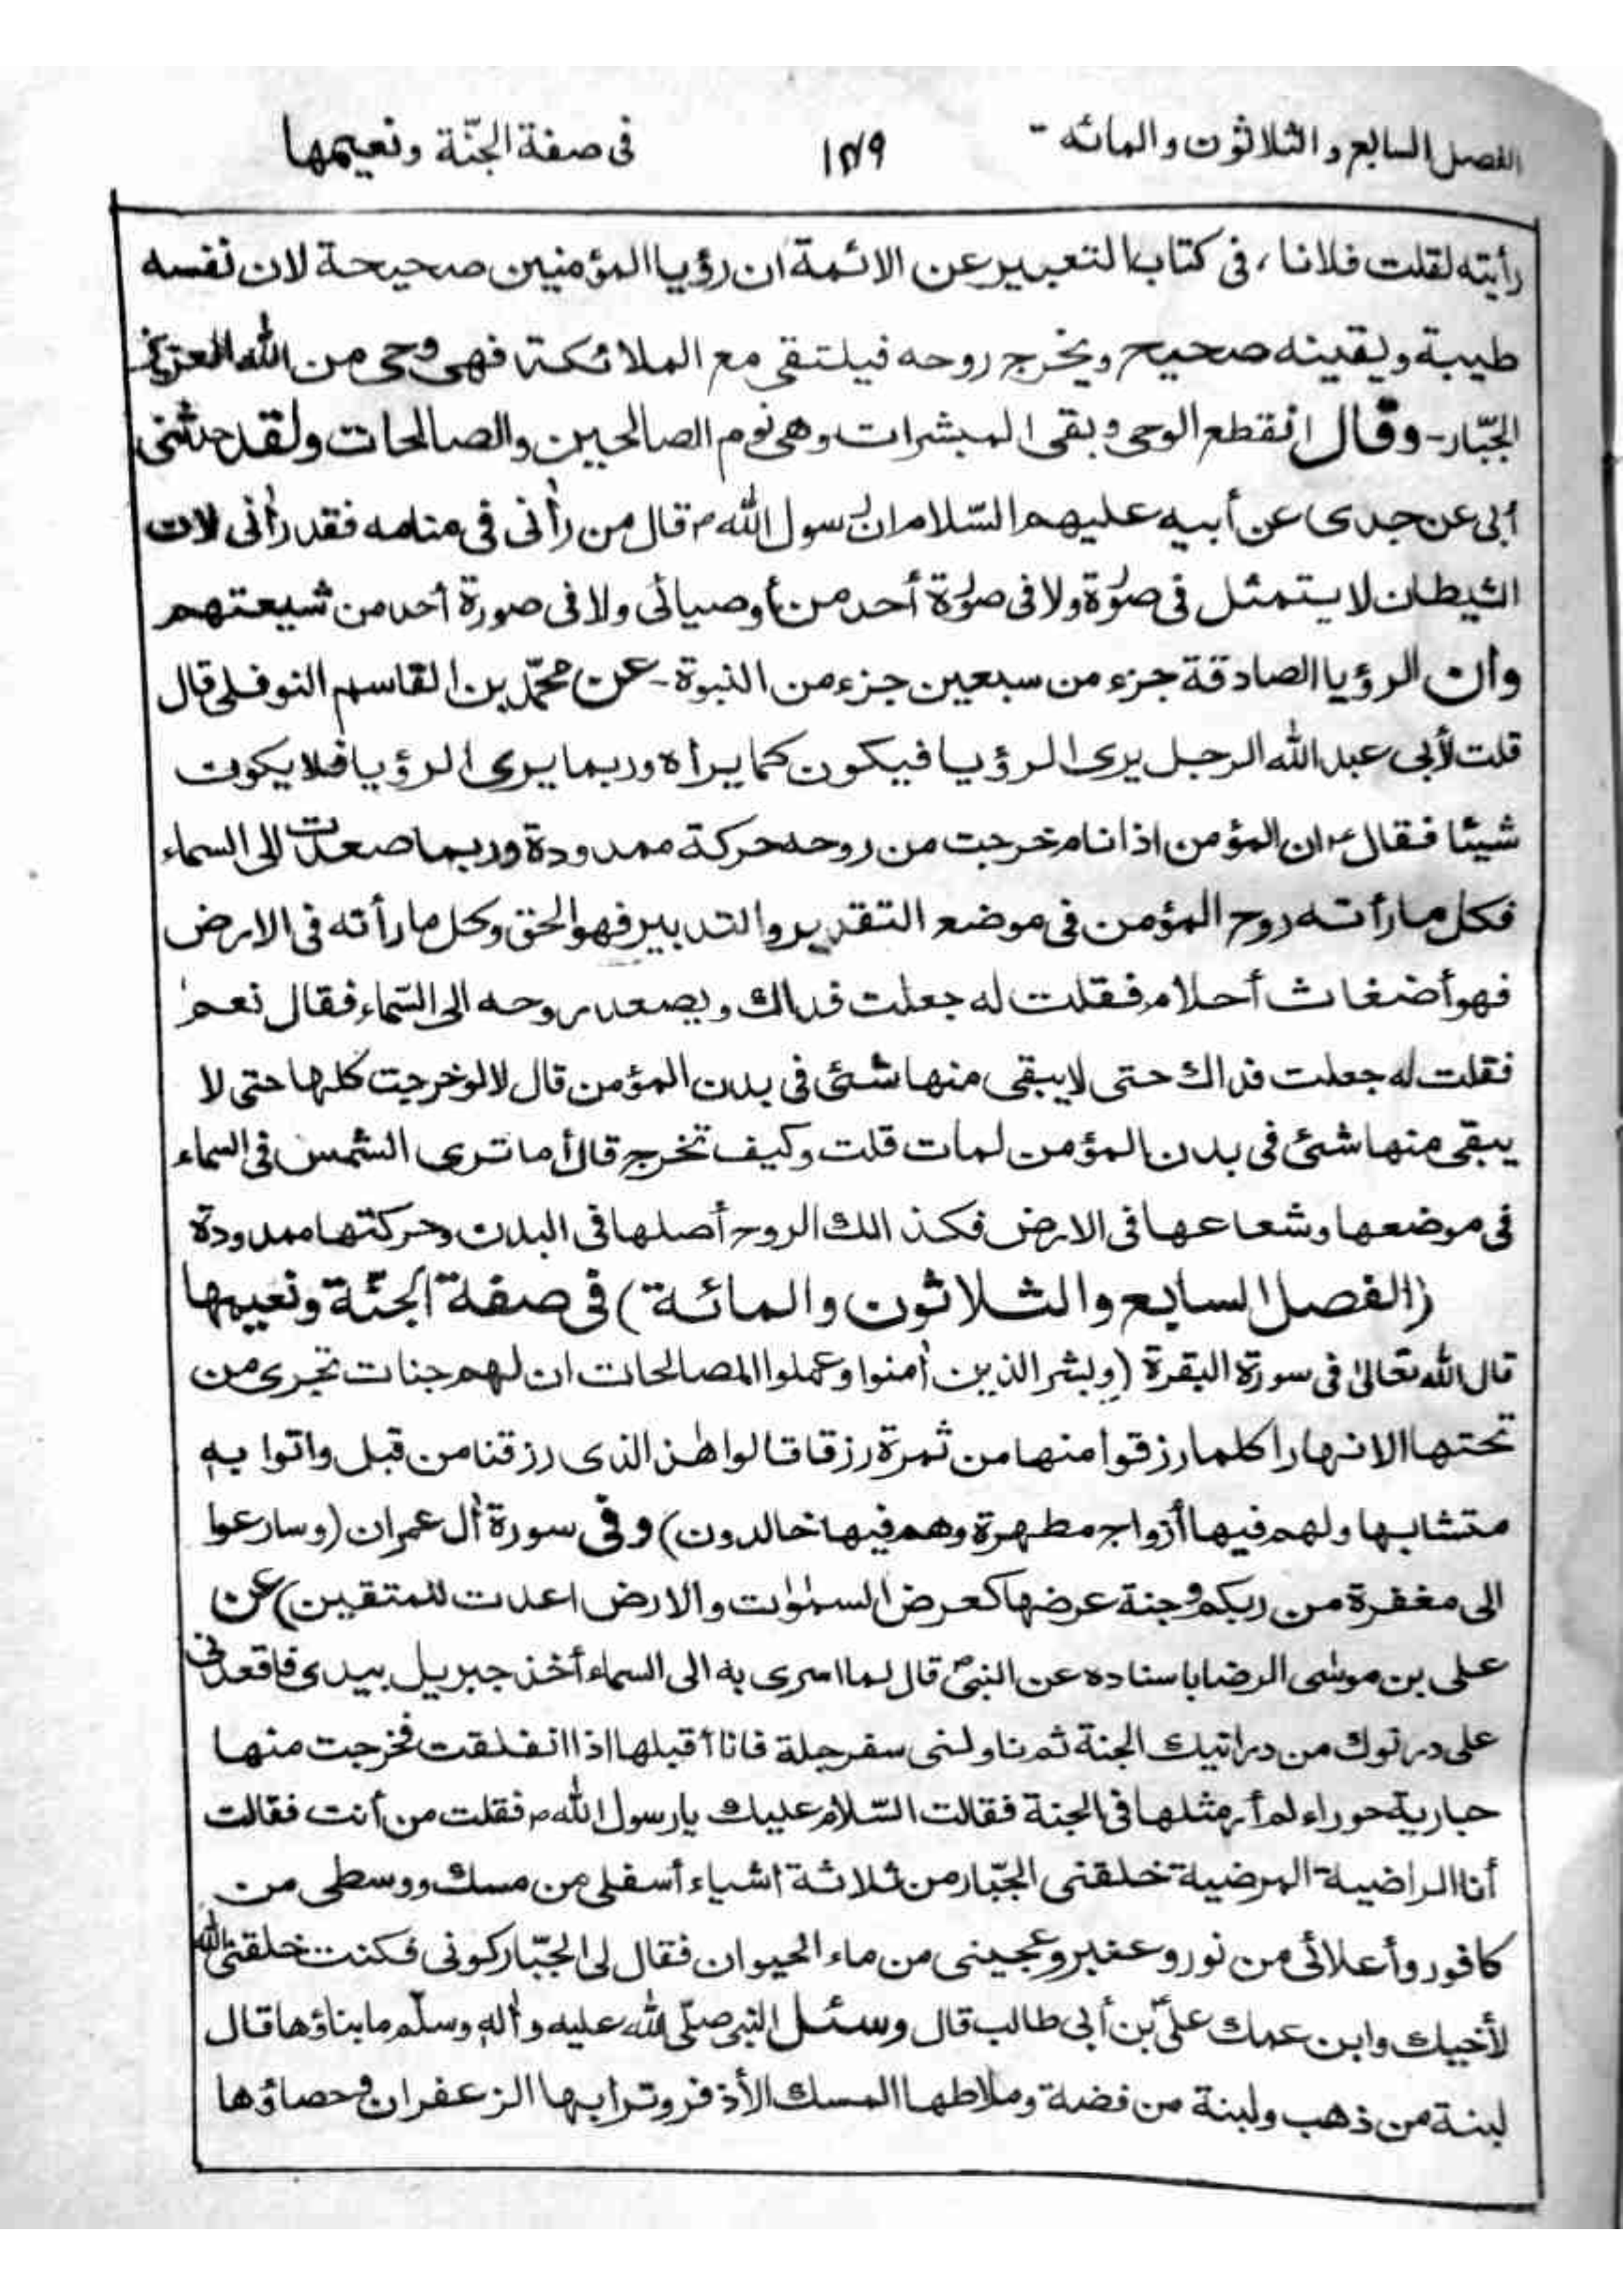 الفصل السابع والثلاثون والمائه - ١٧٩ فى صفة الجنّة ونعيمها
رأيته لقلت فلانا، فى كتاب التعبير عن الائمة ان رؤيا المؤمنين صحيحة لان نفسه
طيبة ويقينه صحيح ويخرج روحه فيلتقى مع الملائكة فهى وحى من الله العزيز
الجبّار - وقال انقطع الوحى وبقى المبشرات وهى نوم الصالحين والصالحات ولقد حدثنى
أبى عن جدى عن أبيه عليهم السّلام ان رسول الله ص قال من رأنى فى منامه فقد رأنى لان
الشيطان لا يتمثل فى صورة ولا فى صورة أحد من أوصيائى ولا فى صورة أحد من شيعتهم
وان الرؤيا الصادقة جزء من سبعين جزء من النبوة - عن محمّد بن القاسم النوفلى قال
قلت لأبى عبد الله الرجل يرى الرؤيا فيكون كما يراه وربما يرى الرؤيا فلا يكون
شيئا فقال ع ان المؤمن اذا نام خرجت من روحه حركة ممدودة وربما صعدت الى السماء
فكل ما رأته روح المؤمن فى موضع التقدير والتدبير فهو الحق وكل ما رأته فى الارض
فهو أضغاث أحلام فقلت له جعلت فداك ويصعد روحه الى السّماء فقال نعم
فقلت له جعلت فداك حتى لا يبقى منها شئى فى بدن المؤمن قال لا لو خرجت كلها حتى لا
يبقى منها شئى فى بدن المؤمن لمات قلت وكيف تخرج قال أما ترى الشمس فى السماء
فى موضعها وشعاعها فى الارض فكذالك الروح أصلها فى البدن وحركتها ممدودة
(الفصل السابع والثلاثون والمائة) فى صفة الجنّة ونعيمها
قال الله تعالىٰ فى سورة البقرة (وبشر الذين اٰمنوا وعملوا الصالحات ان لهم جنات تجرى من
تحتها الانهارا كلما رزقوا منها من ثمرة رزقا قالوا هٰذ الذى رزقنا من قبل واتوا به
متشابها ولهم فيها أزواج مطهرة وهم فيها خالدون) وفى سورة اٰل عمران (وسارعوا
الى مغفرة من ربكم وجنة عرضها كعرض السمٰوٰت والارض اعدت للمتقين) عن
على بن موسٰى الرضا باسناده عن النبىّ ص قال لما اسرى به الى السماء أخذ جبريل بيدى فاقعدنى
على درنوك من درانيك الجنة ثم ناولنى سفرجلة فانا أقبلها اذا انفلقت فخرجت منها
جارية حوراء لم أر مثلها فى الجنة فقالت السّلام عليك يا رسول الله ص فقلت من أنت فقالت
أنا الراضية المرضية خلقنى الجبّار من ثلاثة اشياء أسفلى من مسك ووسطى من
كافور وأعلائى من نور وعنبر وعجينى من ماء الحيوان فقال لى الجبّار كونى فكنت خلقنى الله
لأخيك وابن عمك علىّ بن أبى طالب قال وسئل النبى صلّى الله عليه واٰله وسلّم ما بناؤها قال
لبنة من ذهب ولبنة من فضة وملاطها المسك الأذفر وترابها الزعفران وحصاؤها